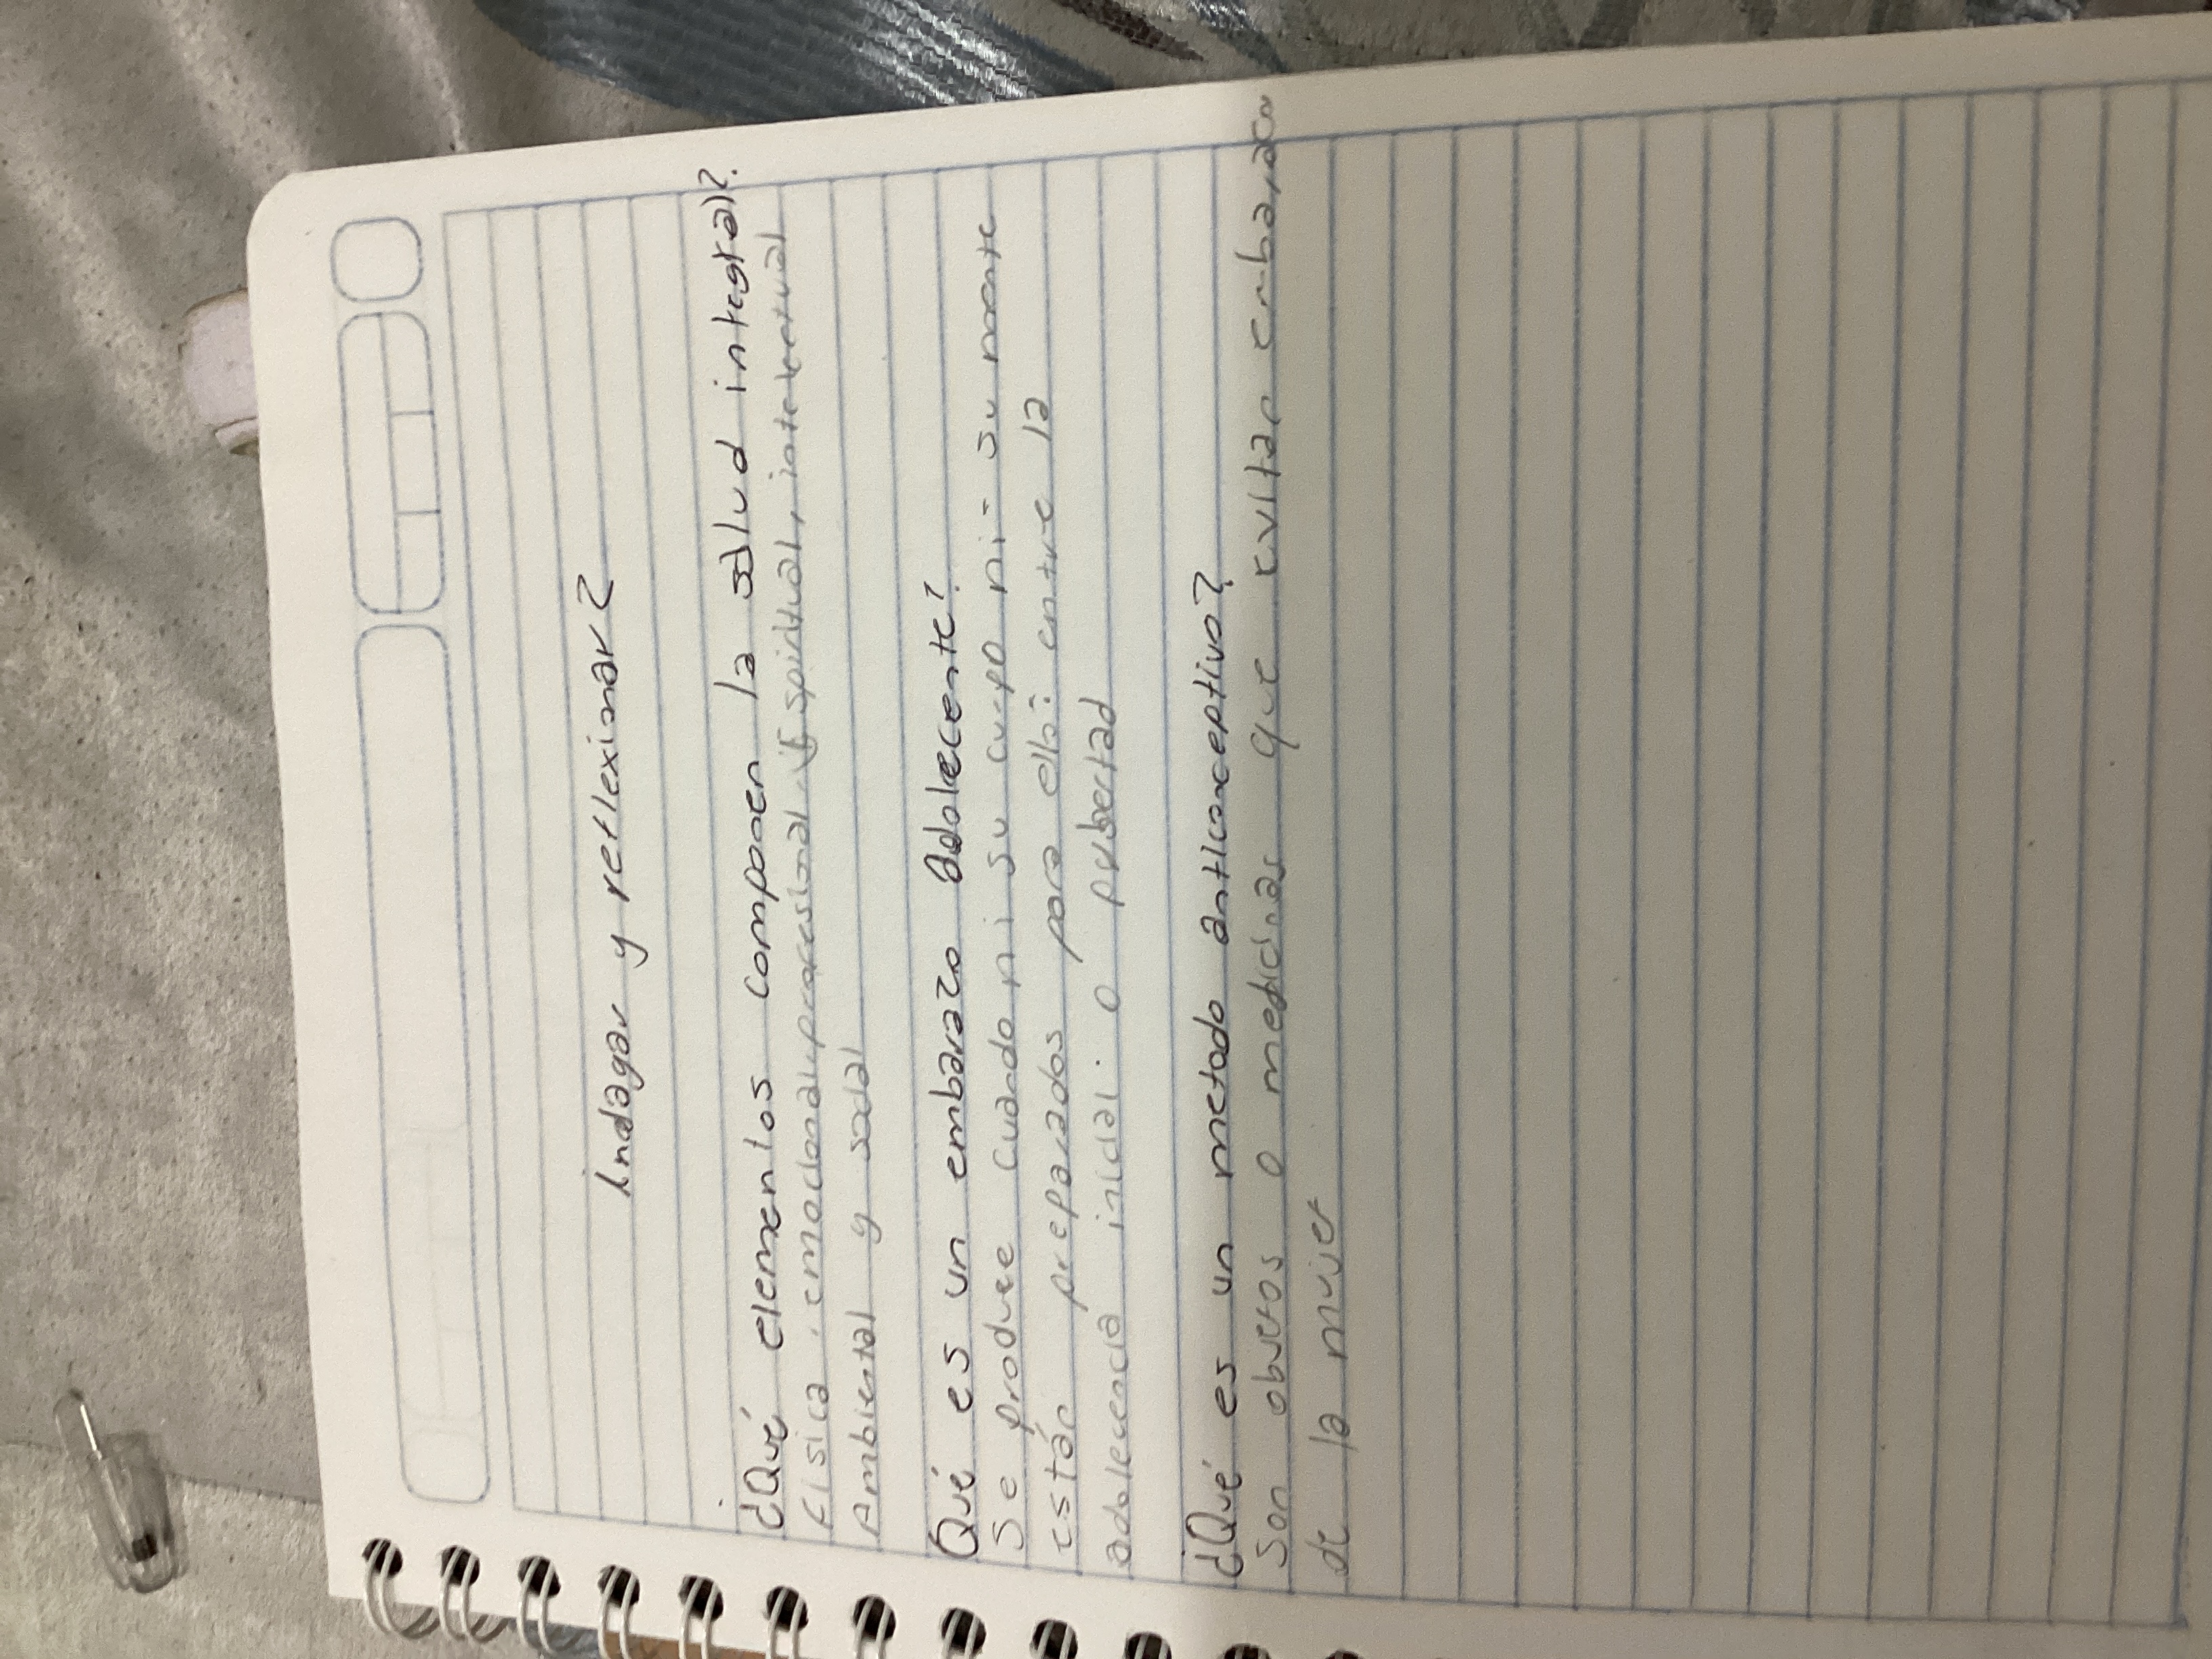 indagar y reflexinar 2
¿Qué elementos componen la salud integral?
Física, emocional, profesional, Espiritual, intelectual
Ambiental y social
Qué es un embarazo adolecente?
Se produce cuando ni su cuerpo ni - su mente
están preparados para ello: entre la
adolecencia inicial. o pubertad
¿Qué es un metodo anticonceptivo?
Son objetos o medicinas que evitar embarazo
de la mujer